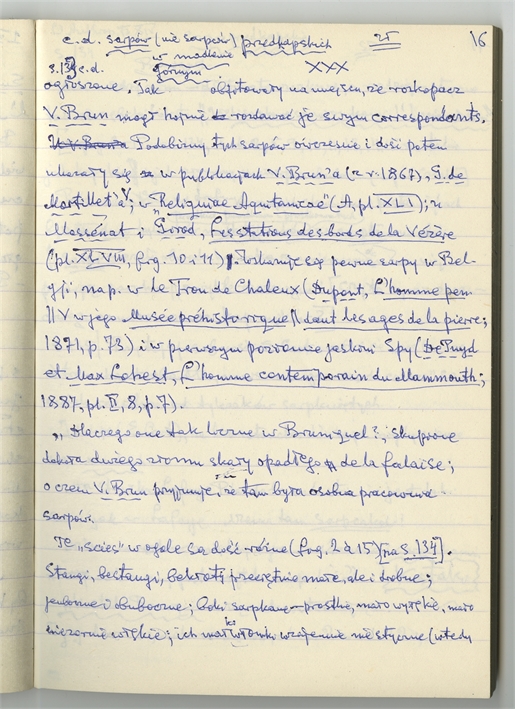 c.d. sarpów (nie sarpeór) przedkapskich 25 16
w madlenie
s. 134 c.d. górnym XXX
ogłoszone. Tak obfitowały na miejscu, że rozkopacz
V. Brun mógł hojnie rozdawać je swym correspondants.
Podobizny tych sarpów ówcześnie i dość potem
ukazały się w publikacjach V. Brun'a (z r. 1867), G. de
Mortillet'a; w "Reliquiae Aquitanicae" (A, pl. XLI); u
Massénat i Girod, Les stations des bords de la Vézère
(pl. XLVIII, fig. 10 i 11). Wskazuje się pewne sarpy w Bel-
gji, np. w le Trou de Chaleux (Dupont, L'homme pen
|| V w jego Musée préhistorique || dant les ages de la pierre;
1871, p. 73) i w pierwszym poziomie jaskini Spy (De Puyd
et Max Lohest, L'homme contemporain du Mammouth;
1887, pl. II, 8, p. 7).
"Dlaczego one tak liczne w Bruniquel?, skupione
dokoła dużego złomu skały opadłego de la falaise;
o czem V. Brun przyjmuje, że tam była osobna pracownia
sarpów.
Te "scies" w ogóle są dość różne (fig. 2 à 15) [na S. 134].
Stangi, bezstangi, przeciętnie małe, ale i drobne;
jednoboczne i obuboczne; boki sarpkane – prostkie, mało wypękłe, mało
niezmiernie wklękłe; ich wzajemnie nie styczne (wtedy